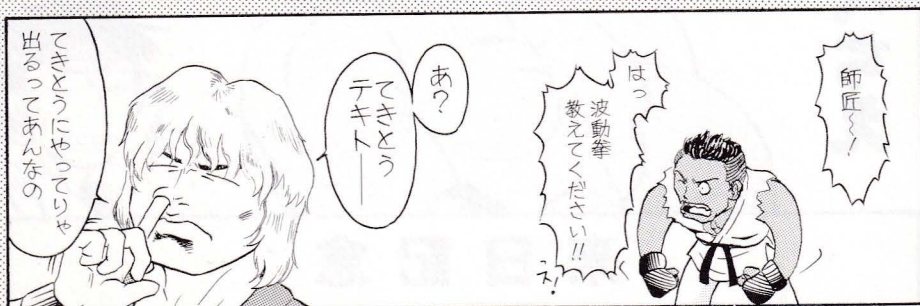 師匠～!
はっ
波動拳
教えてください!!
え!
あ?
てきとう
テキトー
てきとうにやってりゃ
出るってあんなの